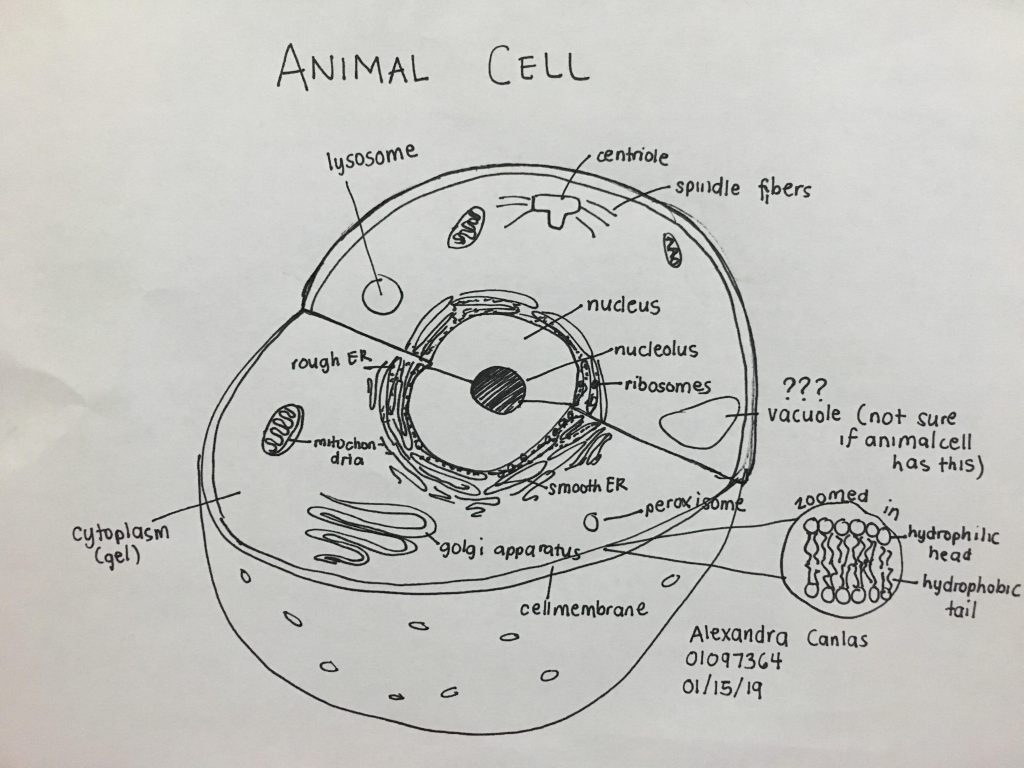 ANIMAL CELL
lysosome
centriole
spindle fibers
nucleus
nucleolus
rough ER
ribosomes
???
vacuole (not sure
if animal cell
has this)
mitochon-
dria
smooth ER
peroxisome
zoomed in
hydrophilic
head
hydrophobic
tail
cytoplasm
(gel)
golgi apparatus
cell membrane
Alexandra Canlas
01097364
01/15/19